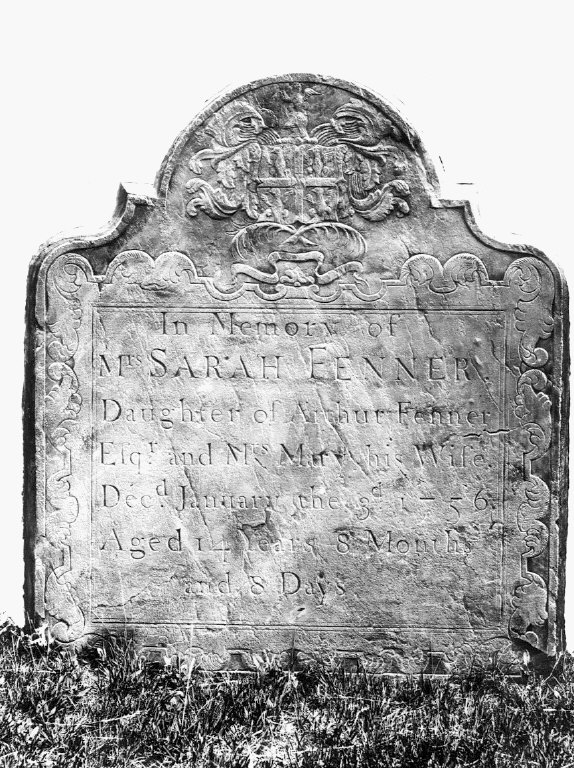 In Memory of
Mrs SARAH FENNER,
Daughter of Arthur Fenner
Esqr and Mrs Mary his Wife.
Decd January the 3d 1756.
Aged 14 Years 8 Months
and 8 Days